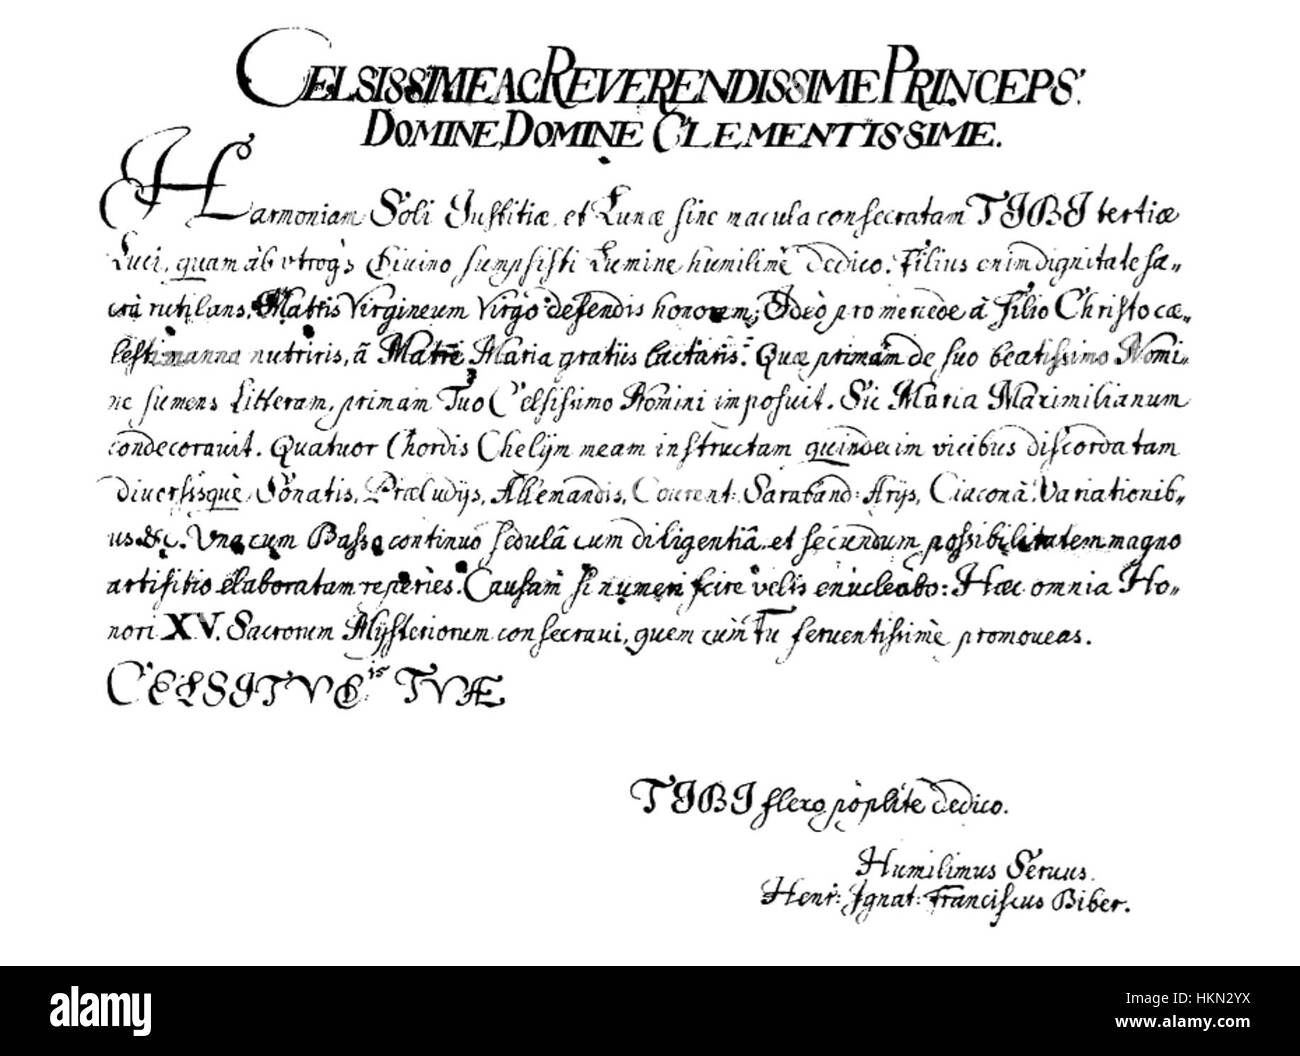 CELSISSIME AC REVERENDISSIME PRINCEPS.
DOMINE, DOMINE CLEMENTISSIME.
Harmoniam Soli Justitiæ, et Lunæ sine macula consecratam TIBI tertiæ
Luci, quam ab utroqs Divino sumpsisti Lumine humilime dedico. Filius enim dignitate sa-
crâ rutilans, Matris Virgineum Virgo defendis honorem; Ideò pro mercede â Filio Christo cæ-
lesti manna nutriris, â Matre Maria gratijs lactaris. Quæ primam de suo beatissimo Nomi-
ne sumens Litteram, primam Tuo Celsissimo Nomini imposuit. Sic Maria Maximilianum
condecoravit. Quatuor Chordis Chelijm meam instructam quindecim vicibus discordatam
diversisque Sonatis, Præludijs, Allemandis, Courent: Saraband: Arijs, Ciaconâ, Variationib-
us &c. Una cum Basso continuo sedulâ cum diligentiâ, et secundum possibilitatem magno
artifitio elaboratam reperies. Causam si numeri scire velis enucleabo: Hæc omnia Ho-
nori XV. Sacrorum Mysteriorum consecravi, quem cum Tu ferventissime promoveas.
CELSITVDis TVÆ
TIBI flexo poplite dedico.
Humilimus Servus.
Henr: Ignat: Franciscus Biber.
alamy
Image ID: HKN2YX
www.alamy.com